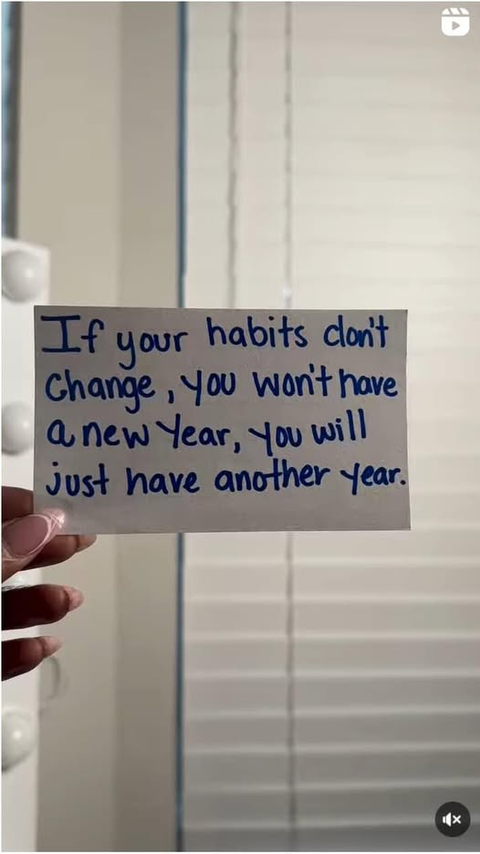 If your habits don't
Change, you won't have
a new year, you will
just have another year.